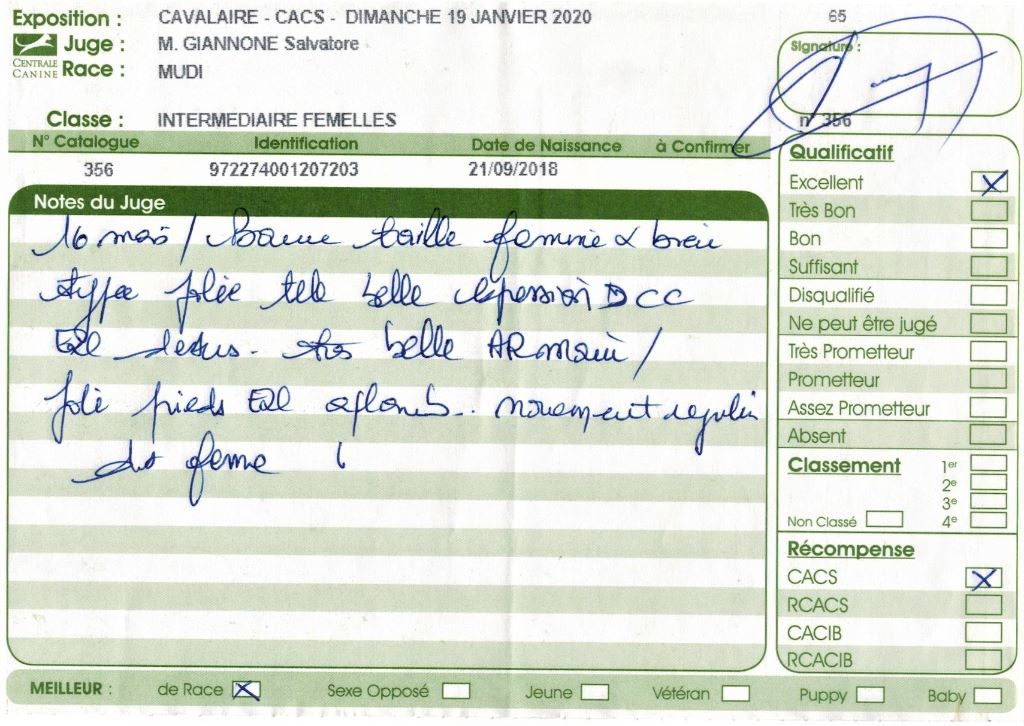 Exposition : CAVALAIRE - CACS - DIMANCHE 19 JANVIER 2020 65
Juge : M. GIANNONE Salvatore
CENTRALE CANINE
Race : MUDI
Signature :
Classe : INTERMEDIAIRE FEMELLES
n° 356
N° Catalogue Identification Date de Naissance à Confirmer
356 972274001207203 21/09/2018
Notes du Juge
16 mois / Bonne taille femmie & bien
typée jolie tete belle expression D C C
EXl dessus - tres belle AR main /
jolè pieds EXl aplombs .. mouvement regulier
dos ferme
Qualificatif
Excellent X
Très Bon
Bon
Suffisant
Disqualifié
Ne peut être jugé
Très Prometteur
Prometteur
Assez Prometteur
Absent
Classement 1er
2e
3e
Non Classé 4e
Récompense
CACS X
RCACS
CACIB
RCACIB
MEILLEUR : de Race X Sexe Opposé Jeune Vétéran Puppy Baby